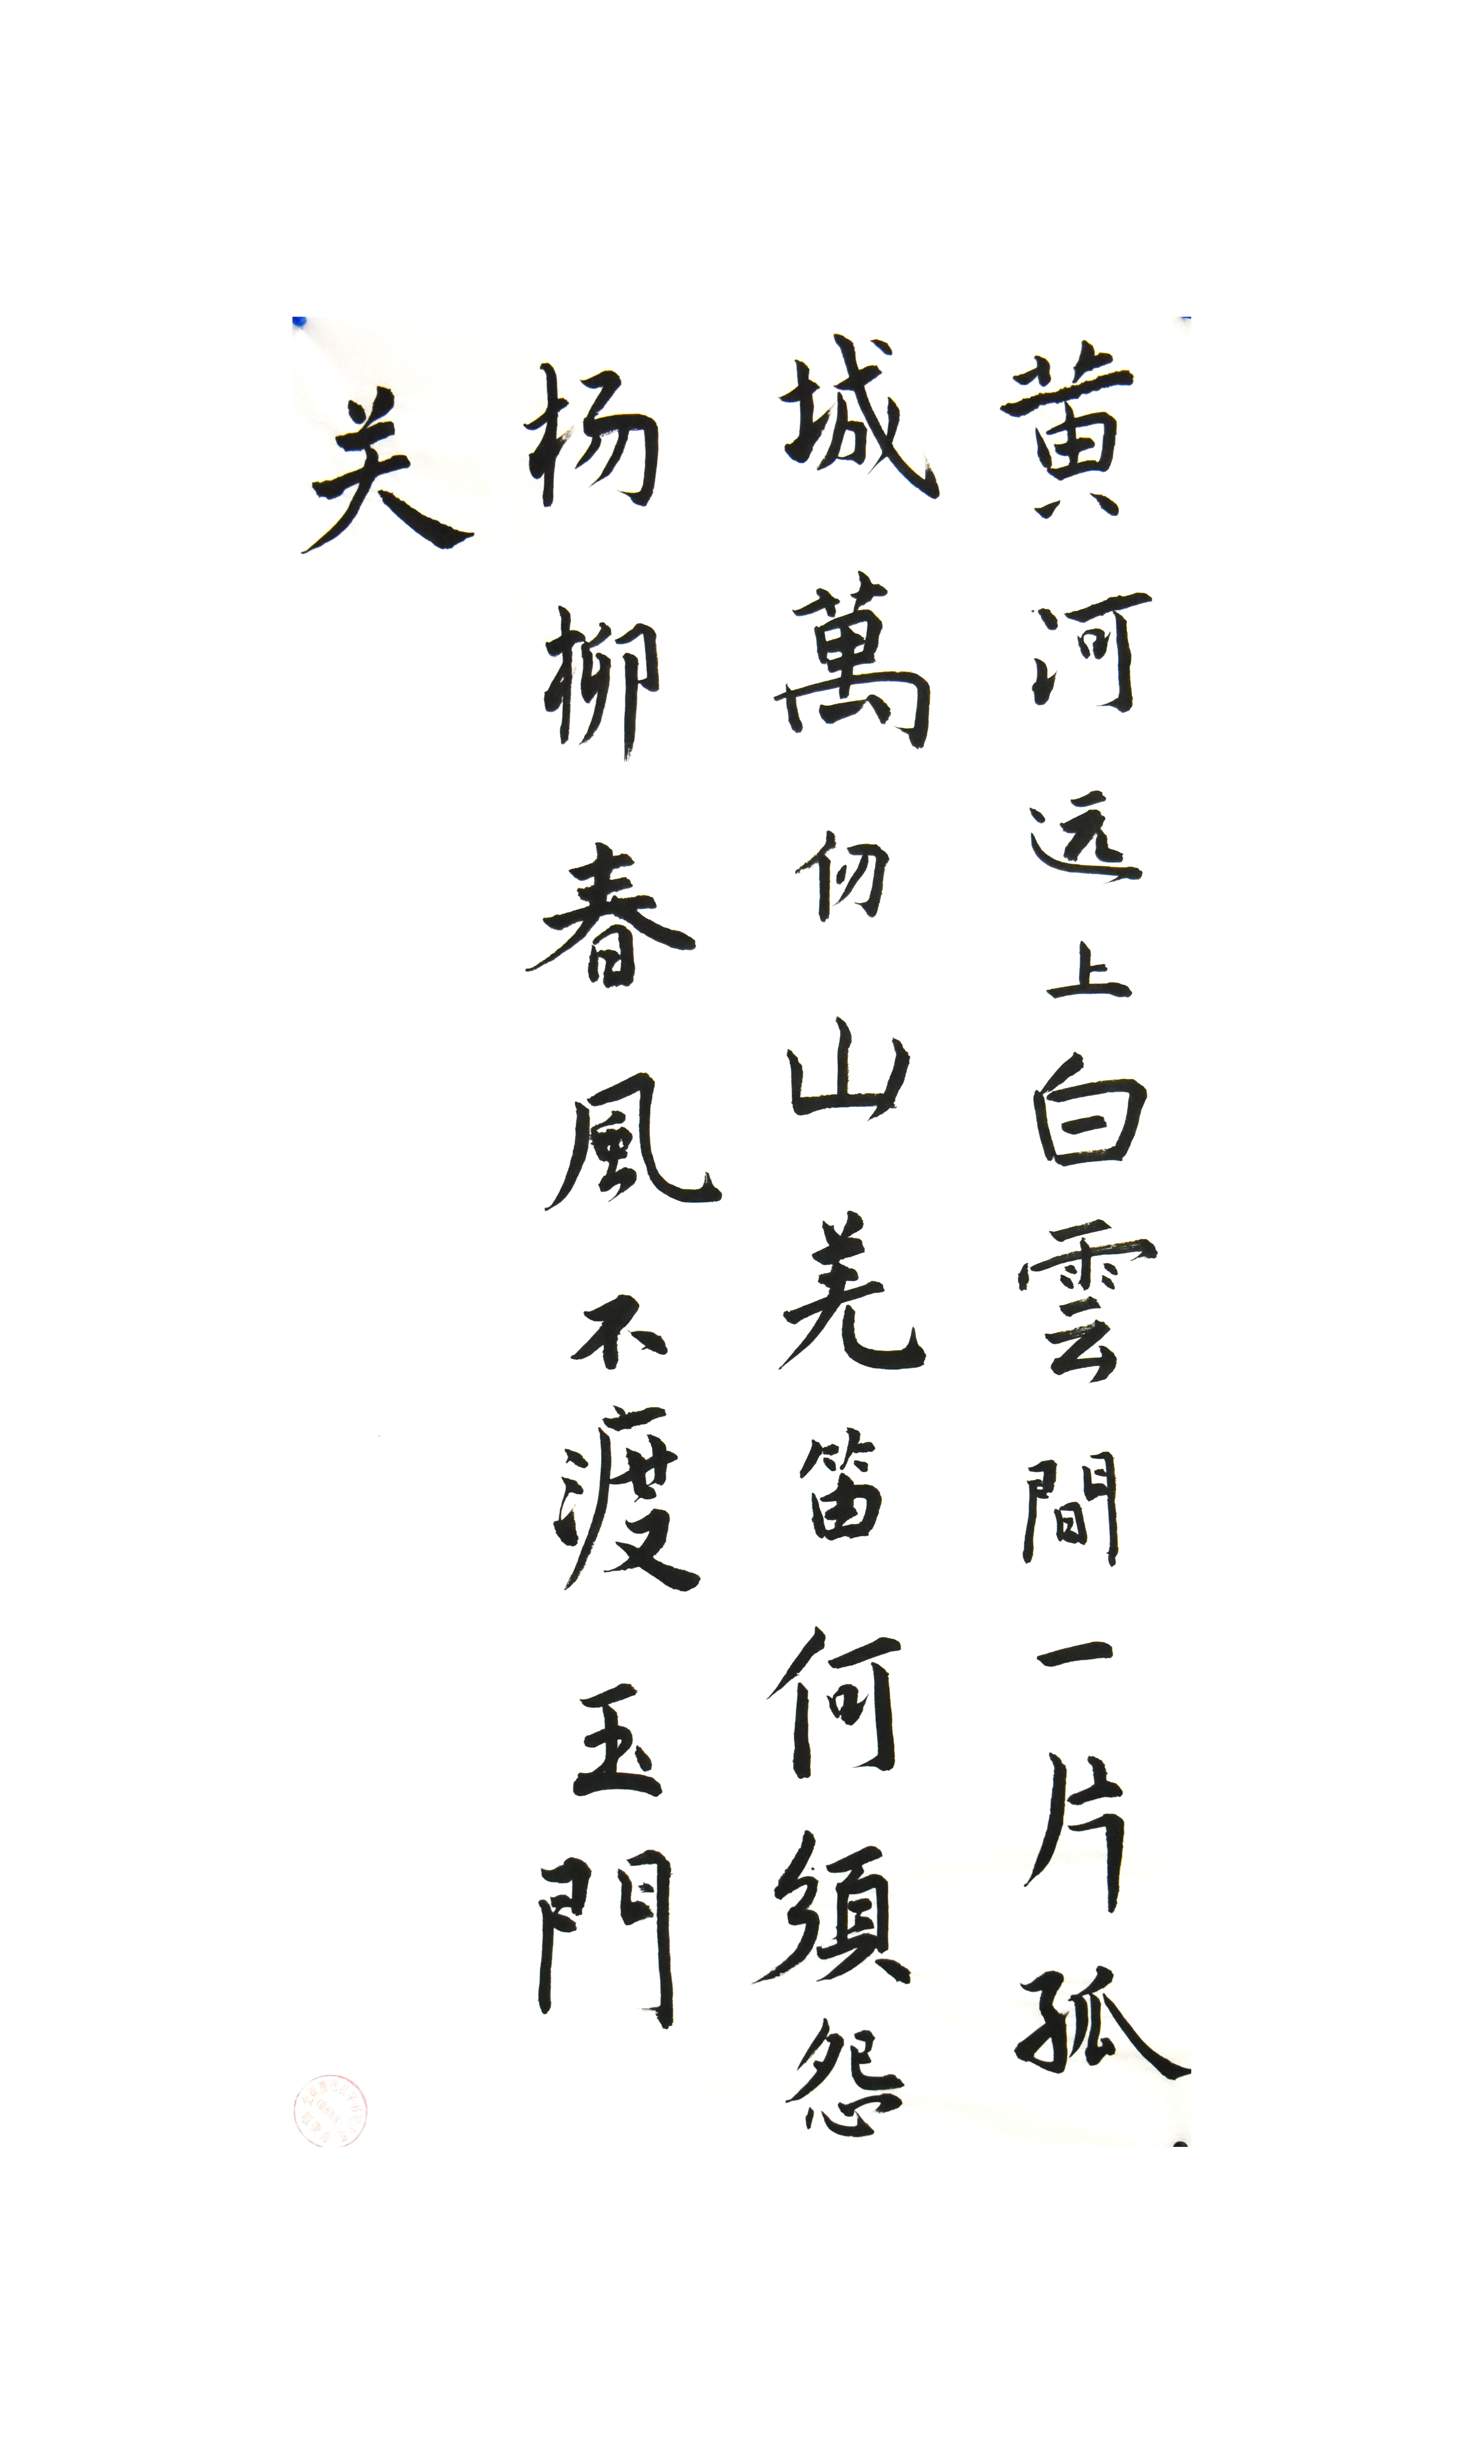 黄河远上白雲間一片孤
城萬仞山羌笛何須怨
杨柳春風不渡玉門
关